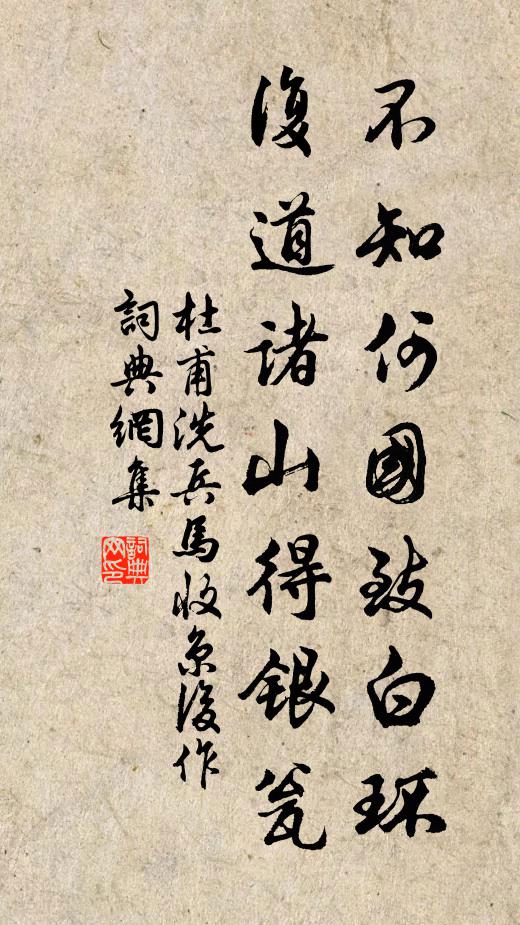 不知何國致白环
復道諸山得銀瓮
杜甫洗兵馬收京後作
詞典網集
詞典网印